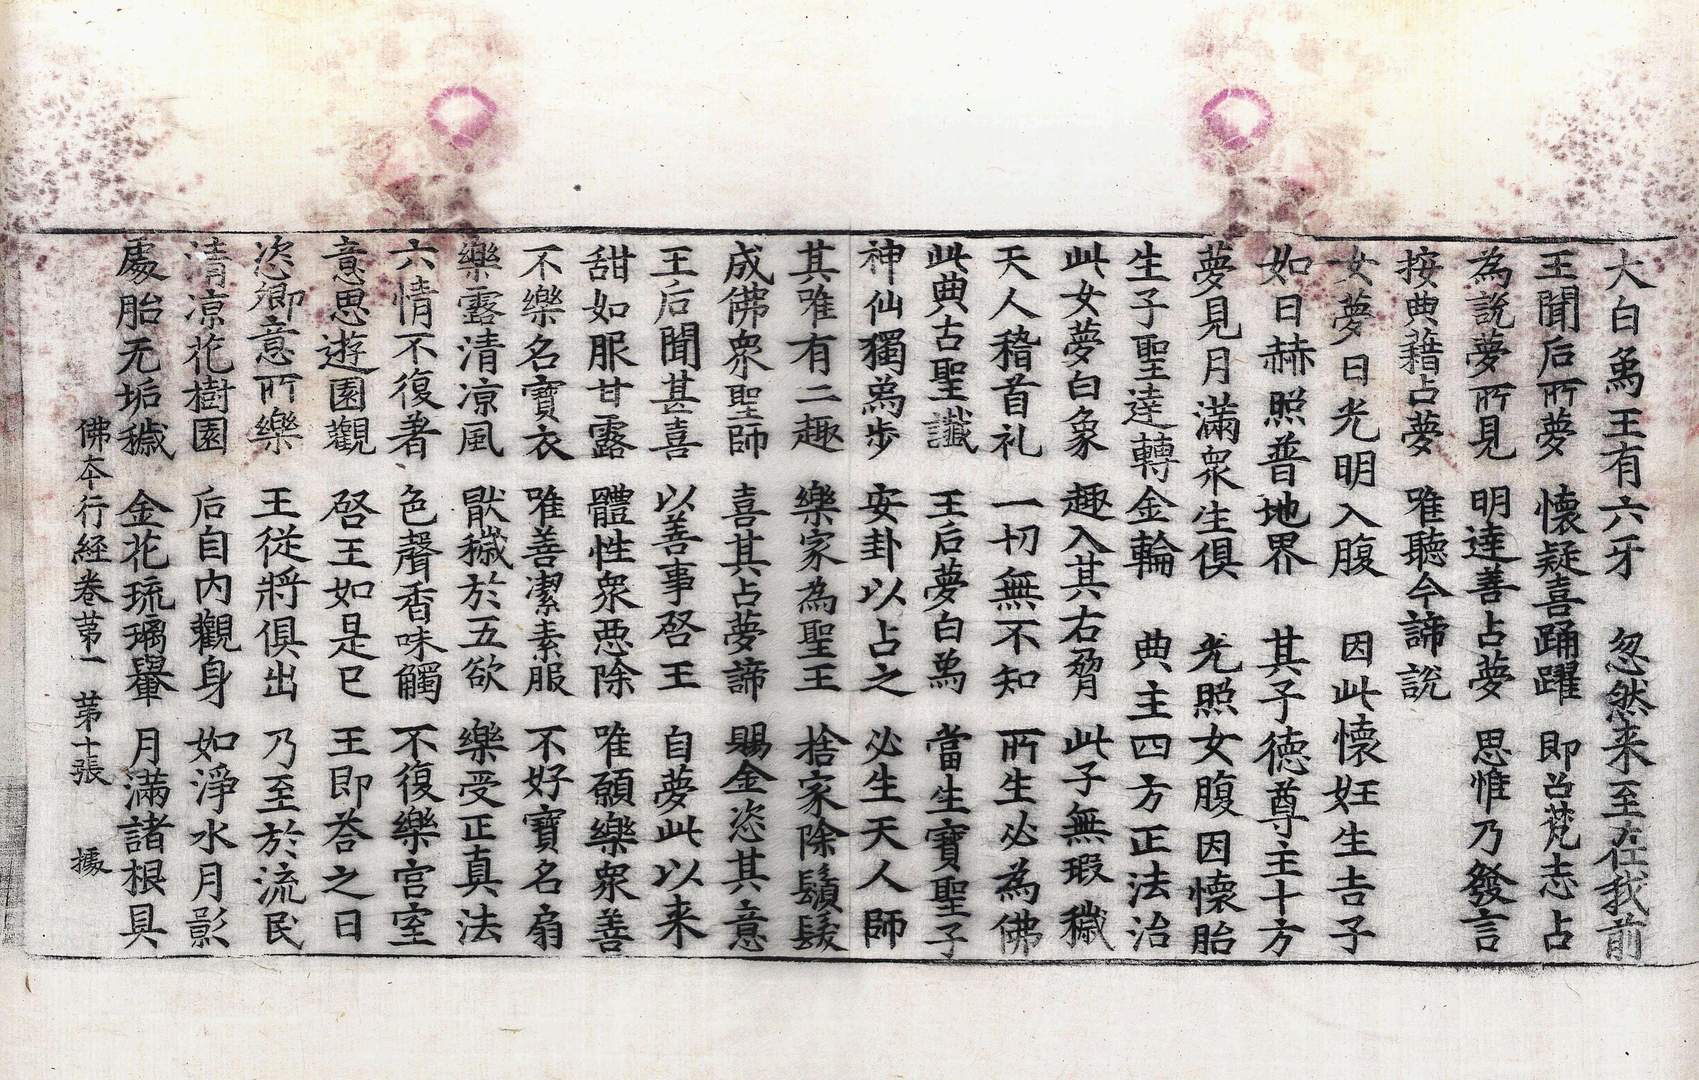 大白爲王有六牙　忽然来至在我前
王聞后所夢　懐疑喜踊躍　即召梵志占
為說夢所見　明達善占夢　思惟乃發言
按典稽占夢　唯聽今諦說
女夢日光明入腹　因此懐妊生吉子
如日赫照普地界　其子德尊主十方
夢見月滿衆生俱　光照女腹因懐胎
生子聖達轉金輪　典主四方正法治
此女夢白象　趣入其右脅　此子無瑕穢
天人稽首礼　一切無不知　所生必為佛
此典古聖讖　王后夢白爲　當生寶聖子
神仙獨爲步　安卦以占之　必生天人師
其唯有二趣　樂家為聖王　捨家除鬚髮
成佛衆聖師　喜其占夢諦　賜金恣其意
王后聞甚喜　以善事啓王　自夢此以来
甜如服甘露　體性衆惡除　唯願樂衆善
不樂名寶衣　唯善潔素服　不好寶名扇
樂露清凉風　猒穢於五欲　樂受正真法
六情不復著　色聲香味觸　不復樂宮室
意思遊園觀　啓王如是已　王即荅之曰
恣卿意所樂　王從將俱出　乃至於流民
清凉花樹園　后自内觀身　如淨水月影
處胎无垢穢　金花琉璃轝　月滿諸根具
佛本行経卷第一　第十張　據